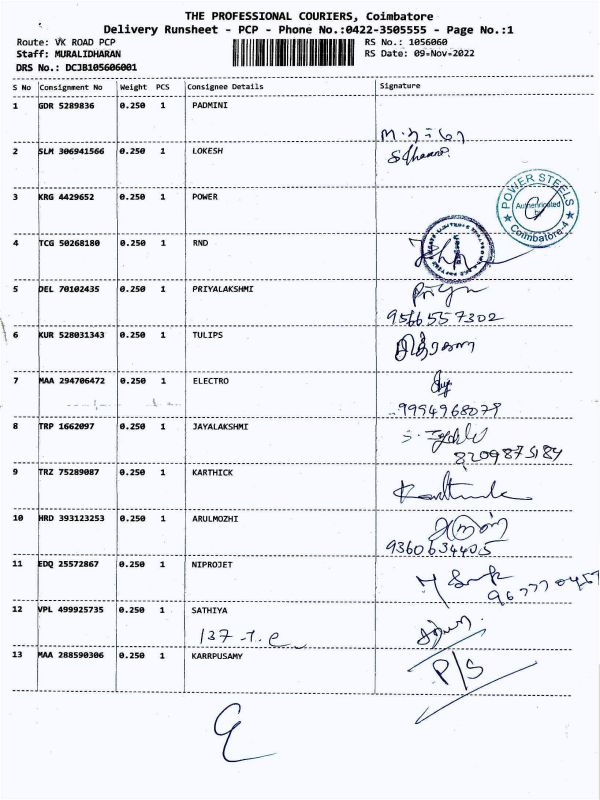 THE PROFESSIONAL COURIERS, Coimbatore
Delivery Runsheet - PCP - Phone No.:0422-3505555 - Page No.:1
Route: VK ROAD PCP RS No.: 1056060
Staff: MURALIDHARAN RS Date: 09-Nov-2022
DRS No.: DCJB105606001
S No Consignment No Weight PCS Consignee Details Signature
1 GDR 5289836 0.250 1 PADMINI
2 SLM 306941566 0.250 1 LOKESH
3 KRG 4429652 0.250 1 POWER
POWER STEELS
Authenticated
by
Coimbatore-4
4 TCG 50268180 0.250 1 RND
5 DEL 70102435 0.250 1 PRIYALAKSHMI
Priya
9566557302
6 KUR 528031343 0.250 1 TULIPS
7 MAA 294706472 0.250 1 ELECTRO
9994968079
8 TRP 1662097 0.250 1 JAYALAKSHMI
8209875184
9 TRZ 75289087 0.250 1 KARTHICK
10 HRD 393123253 0.250 1 ARULMOZHI
9360634405
11 EDQ 25572867 0.250 1 NIPROJET
12 VPL 499925735 0.250 1 SATHIYA
137 -T.e
13 MAA 288590306 0.250 1 KARRPUSAMY
P/S